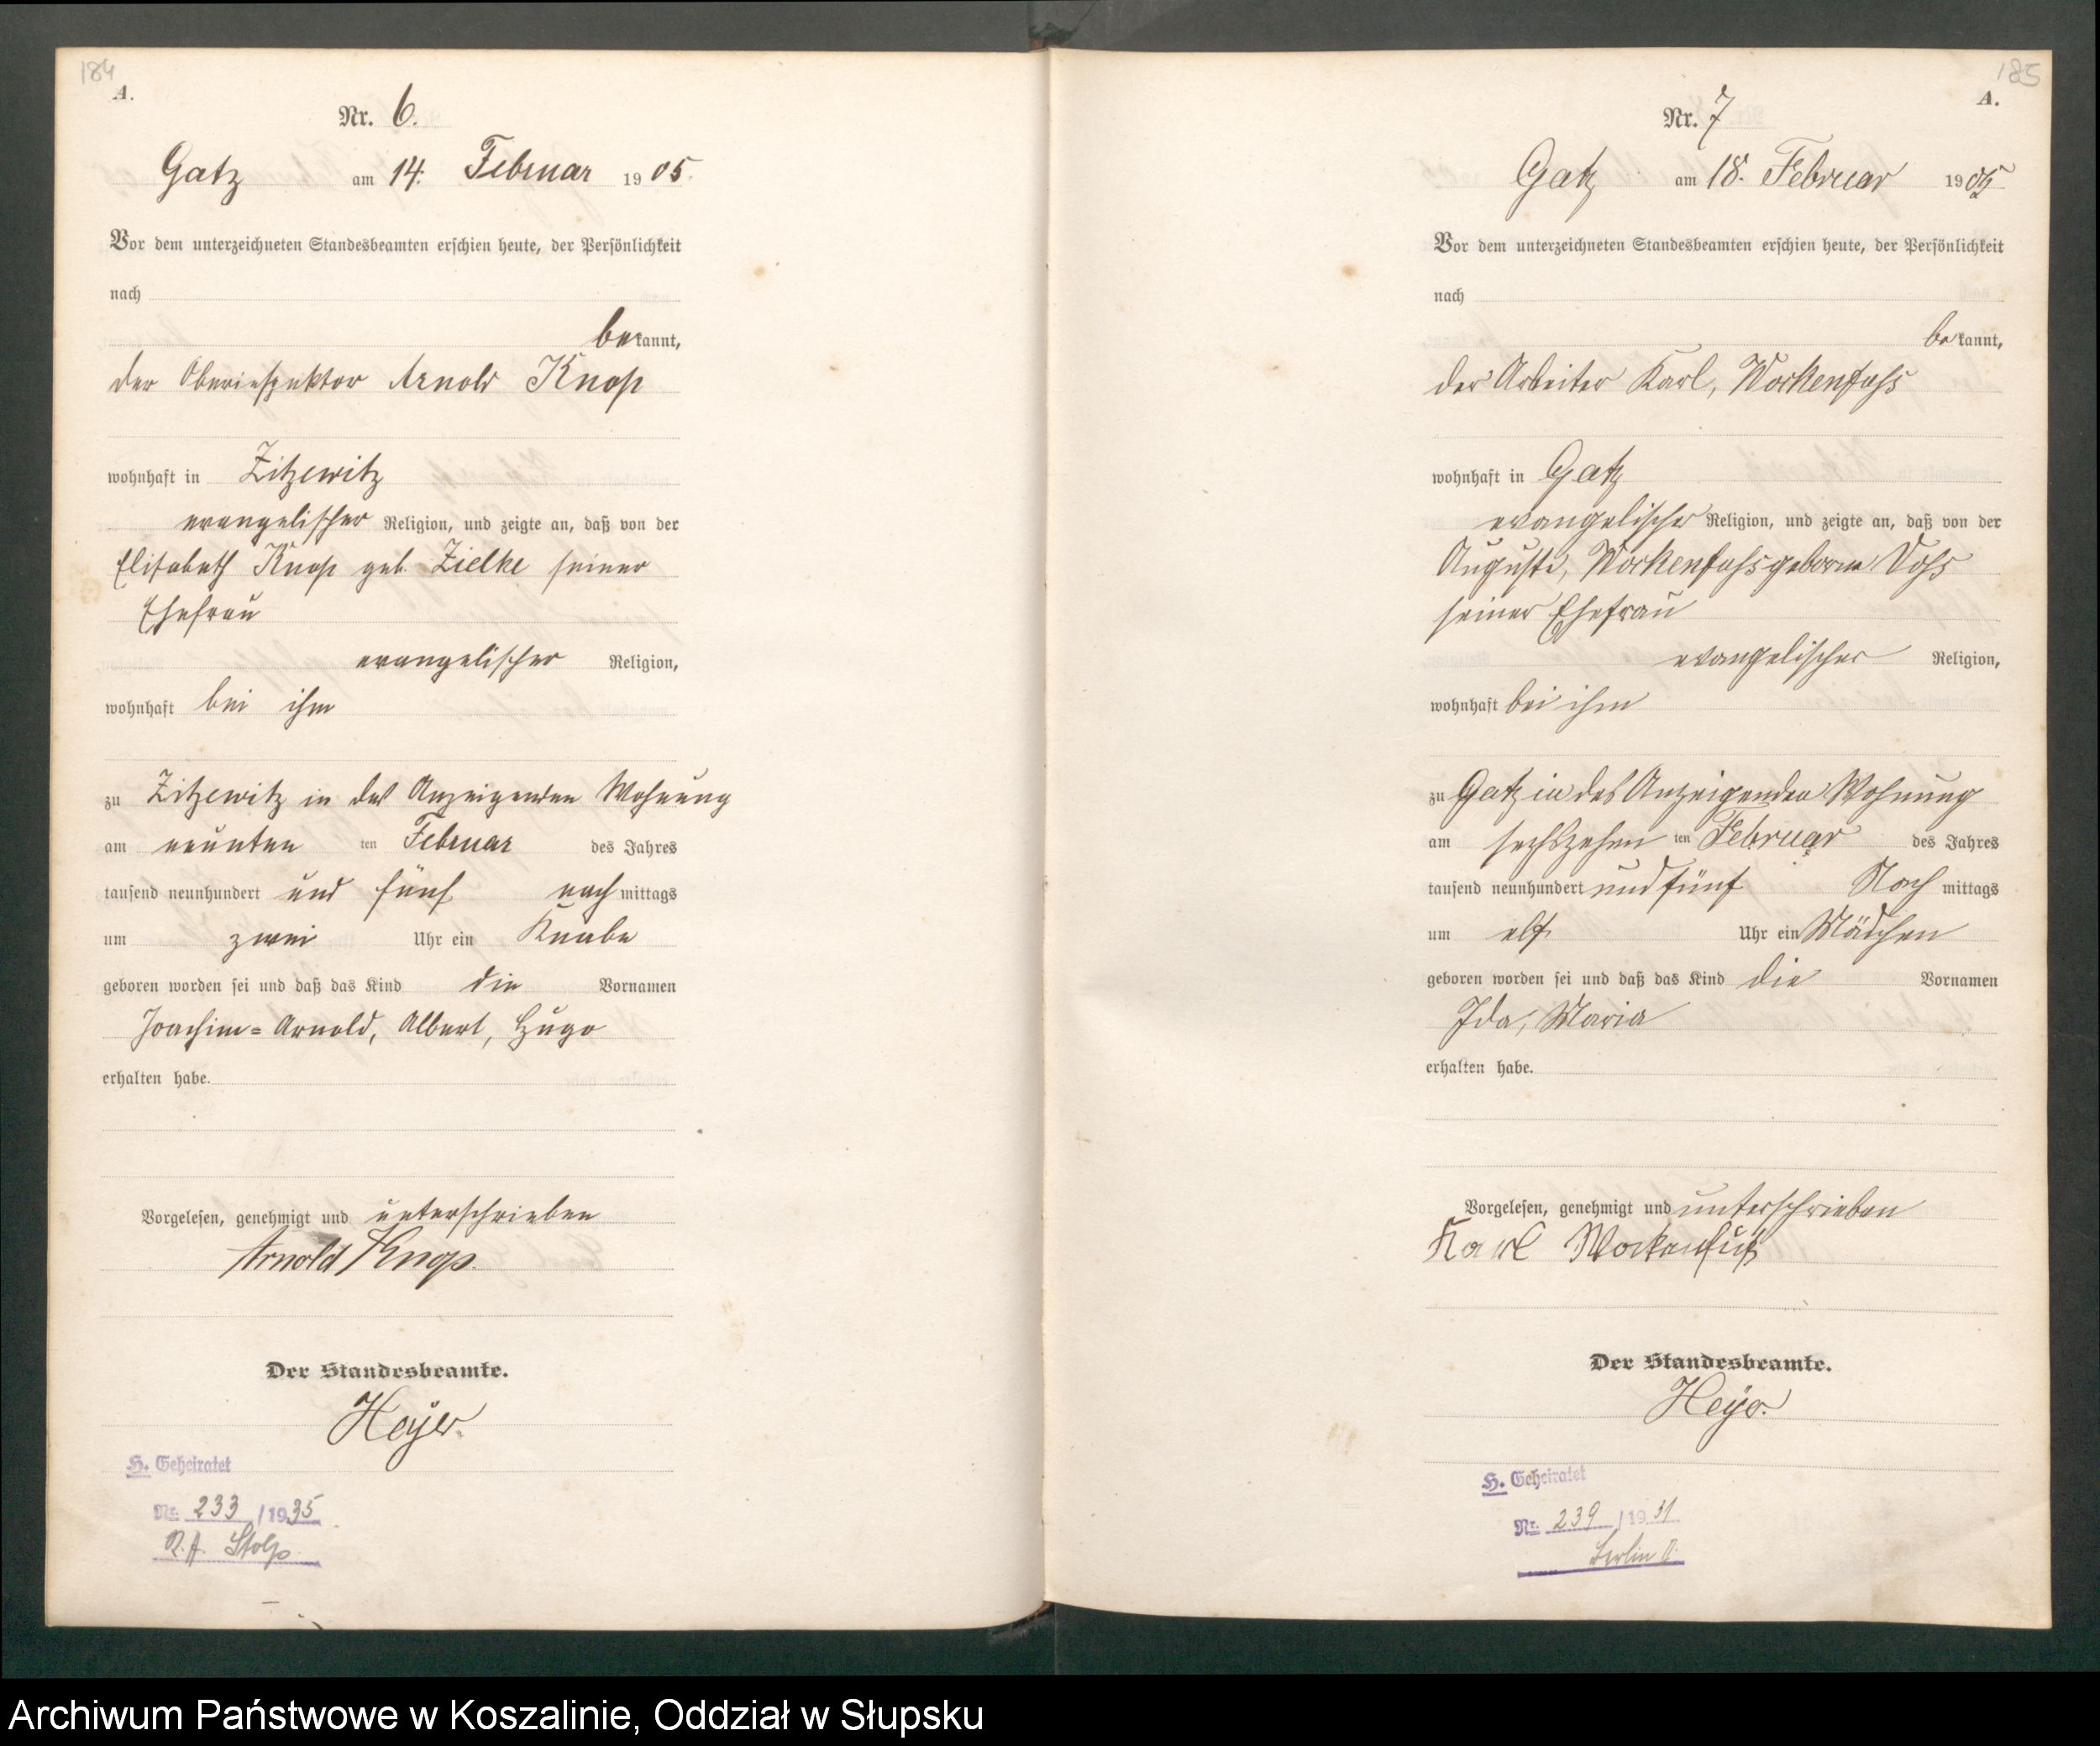 184
A.
Nr. 6.
Gatz am 14. Februar 1905.
Vor dem unterzeichneten Standesbeamten erschien heute, der Persönlichkeit
nach
bekannt,
der Oberinspektor Arnold Knop
wohnhaft in Zitzewitz
evangelischer Religion, und zeigte an, daß von der
Elisabeth Knop geb. Zielke seiner
Ehefrau
evangelischer Religion,
wohnhaft bei ihm
zu Zitzewitz in des Anzeigenden Wohnung
am neunten ten Februar des Jahres
tausend neunhundert und fünf nachmittags
um zwei Uhr ein Knabe
geboren worden sei und daß das Kind die Vornamen
Joachim=Arnold, Albert, Hugo
erhalten habe.
Vorgelesen, genehmigt und unterschrieben
Arnold Knop.
Der Standesbeamte.
Heyer.
H. Geheiratet
Nr. 233 /1935
St. A. Stolp
185
A.
Nr. 7
Gatz am 18. Februar 1905
Vor dem unterzeichneten Standesbeamten erschien heute, der Persönlichkeit
nach
bekannt,
der Arbeiter Karl, Wockenfuss
wohnhaft in Gatz
evangelischer Religion, und zeigte an, daß von der
Auguste, Wockenfuss geborne Voss
seiner Ehefrau
evangelischer Religion,
wohnhaft bei ihm
zu Gatz in des Anzeigenden Wohnung
am sechszehn ten Februar des Jahres
tausend neunhundert und fünf Nachmittags
um elf Uhr ein Mädchen
geboren worden sei und daß das Kind die Vornamen
Ida, Maria
erhalten habe.
Vorgelesen, genehmigt und unterschrieben
Karl Wockenfuß
Der Standesbeamte.
Heyer.
H. Geheiratet
Nr. 239 /1931
Berlin II.
Archiwum Państwowe w Koszalinie, Oddział w Słupsku